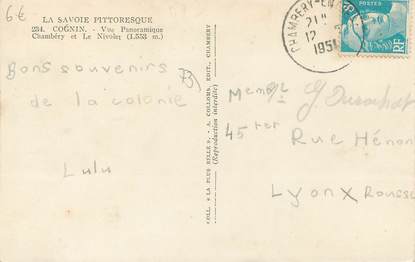 6€
LA SAVOIE PITTORESQUE
234. COGNIN. - Vue Panoramique
Chambéry et Le Nivolet (1.553 m.)
Bons souvenirs
de la colonie
Lulu
73
COLL. « LA PLUS BELLE ». - A. COLLOMB, EDIT., CHAMBERY
(Reproduction interdite)
CHAMBERY
21H
12
1951
POSTES
RF
G.
45 ter
Rue Hénon
Lyon X Rousse